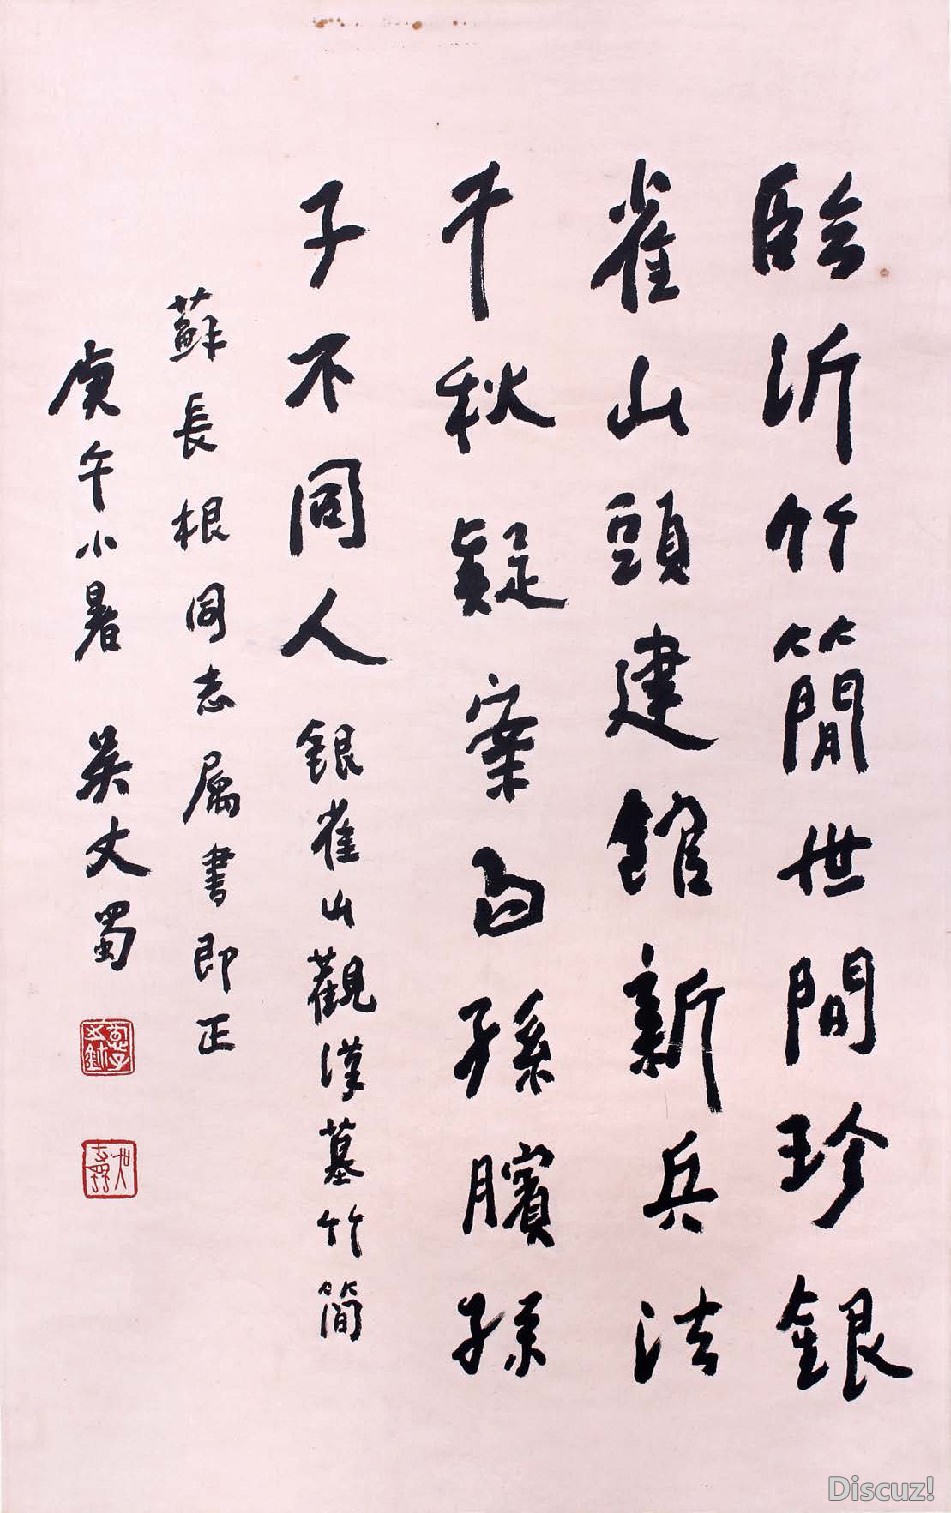 臨沂竹簡世間珍銀
雀山頭建館新兵法
千秋疑案白孫臏孫
子不同人 銀雀山觀漢墓竹簡
蘇長根同志属書即正
庚午小暑 吴丈蜀
Discuz!